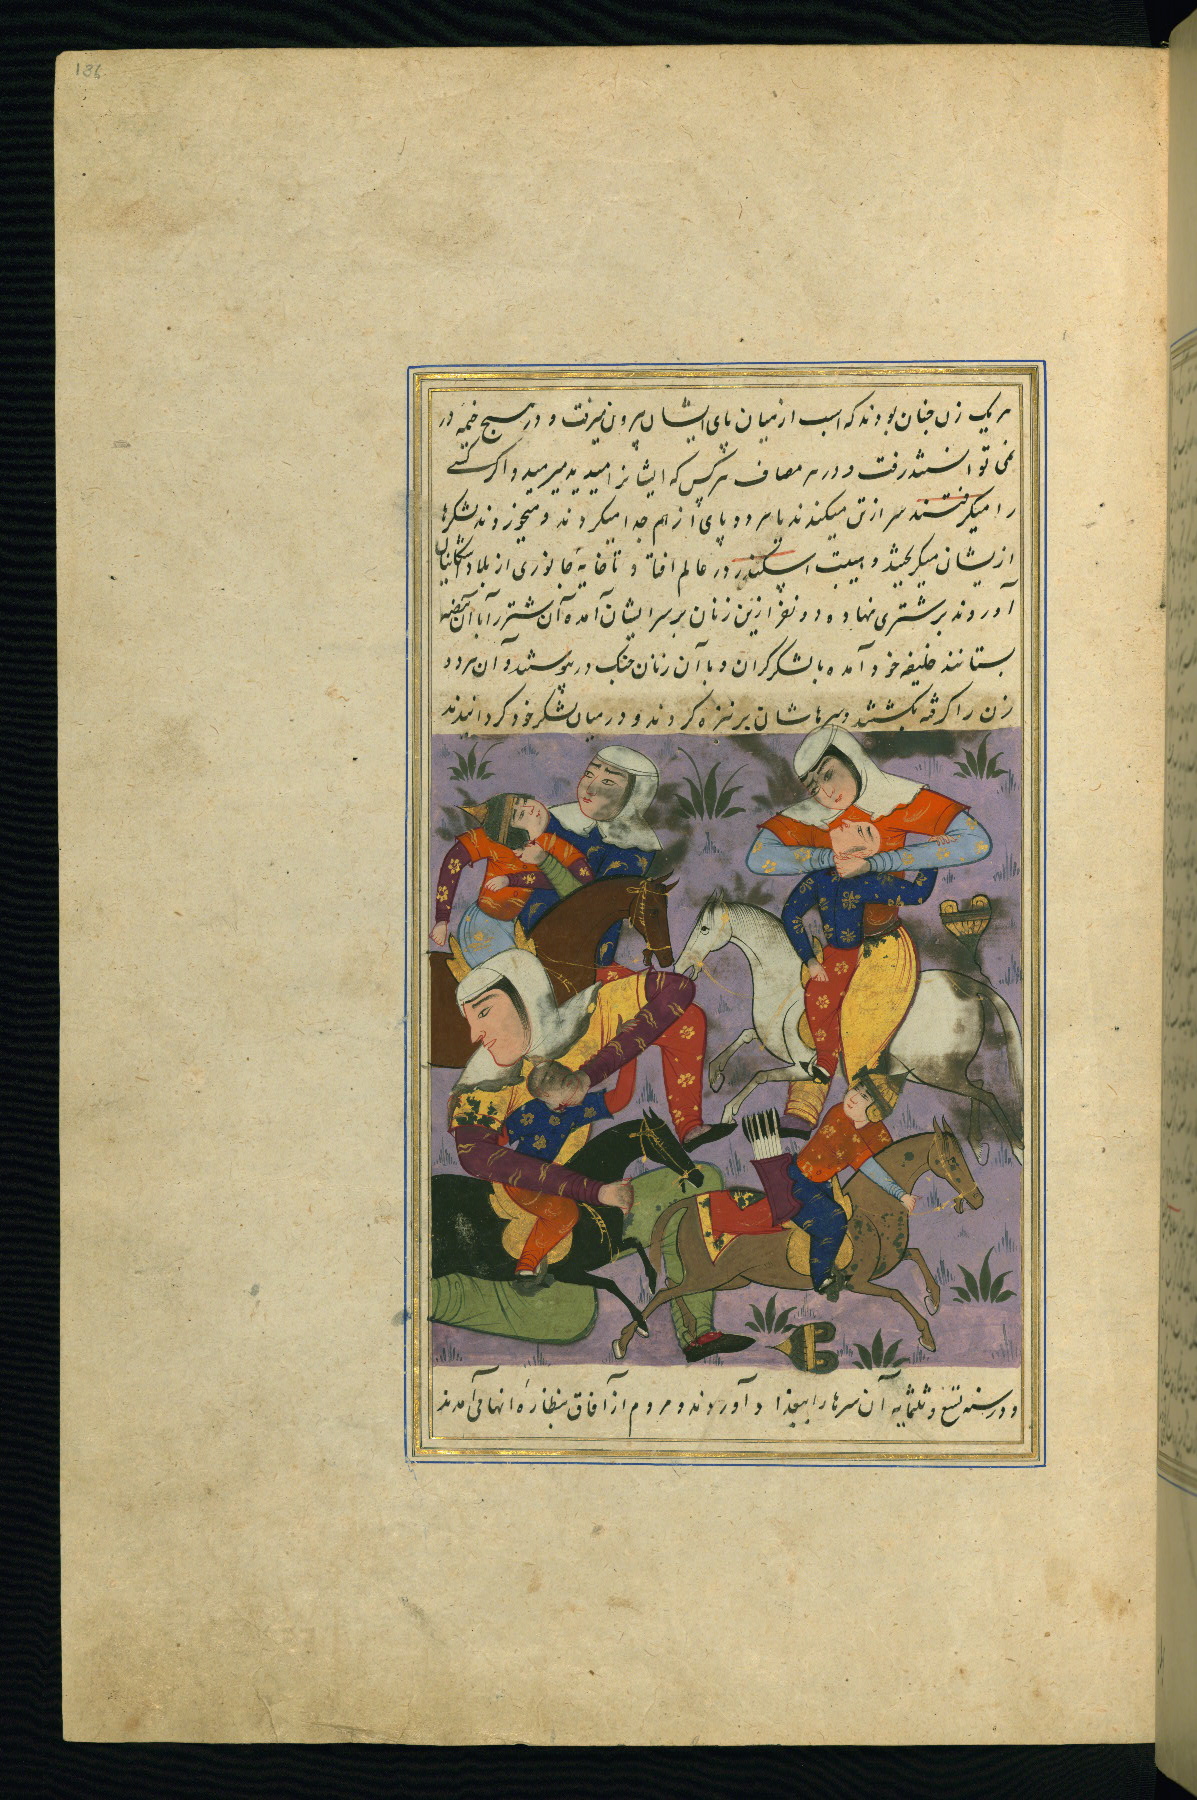 136
هر یک زن چنان بودند که اسب از میان پای ایشان بیرون نمیرفت و در هیچ خیمه در
نمی توانستند رفت و در هر مصاف هر کس که ایشانرا میدید میرمید و اگر کسی
را میگرفتند سر از تن میکندند یا سر و دو پای از هم جدا میکردند و میخوردند لشکرها
ازیشان میگریختند و هیبت در عالم افتاد و تا خایهٔ جانوری از بلاد
آوردند بر شتری نهاده دو نفر ازین زنان بر سر ایشان آمده آن شتر را با آن بیضه
بستانند خلیفه خود آمده با لشکر گران و با آن زنان جنک در پیوستند و آن هر دو
زن را گرفته بکشتند و سرهاشان بر نیزه کردند و در میان لشکر خود گردانیدند
و در سنه تسع و ثلثمایه آن سرها را ببغداد آوردند و مردم از آفاق بنظارهٔ آنها می آمدند